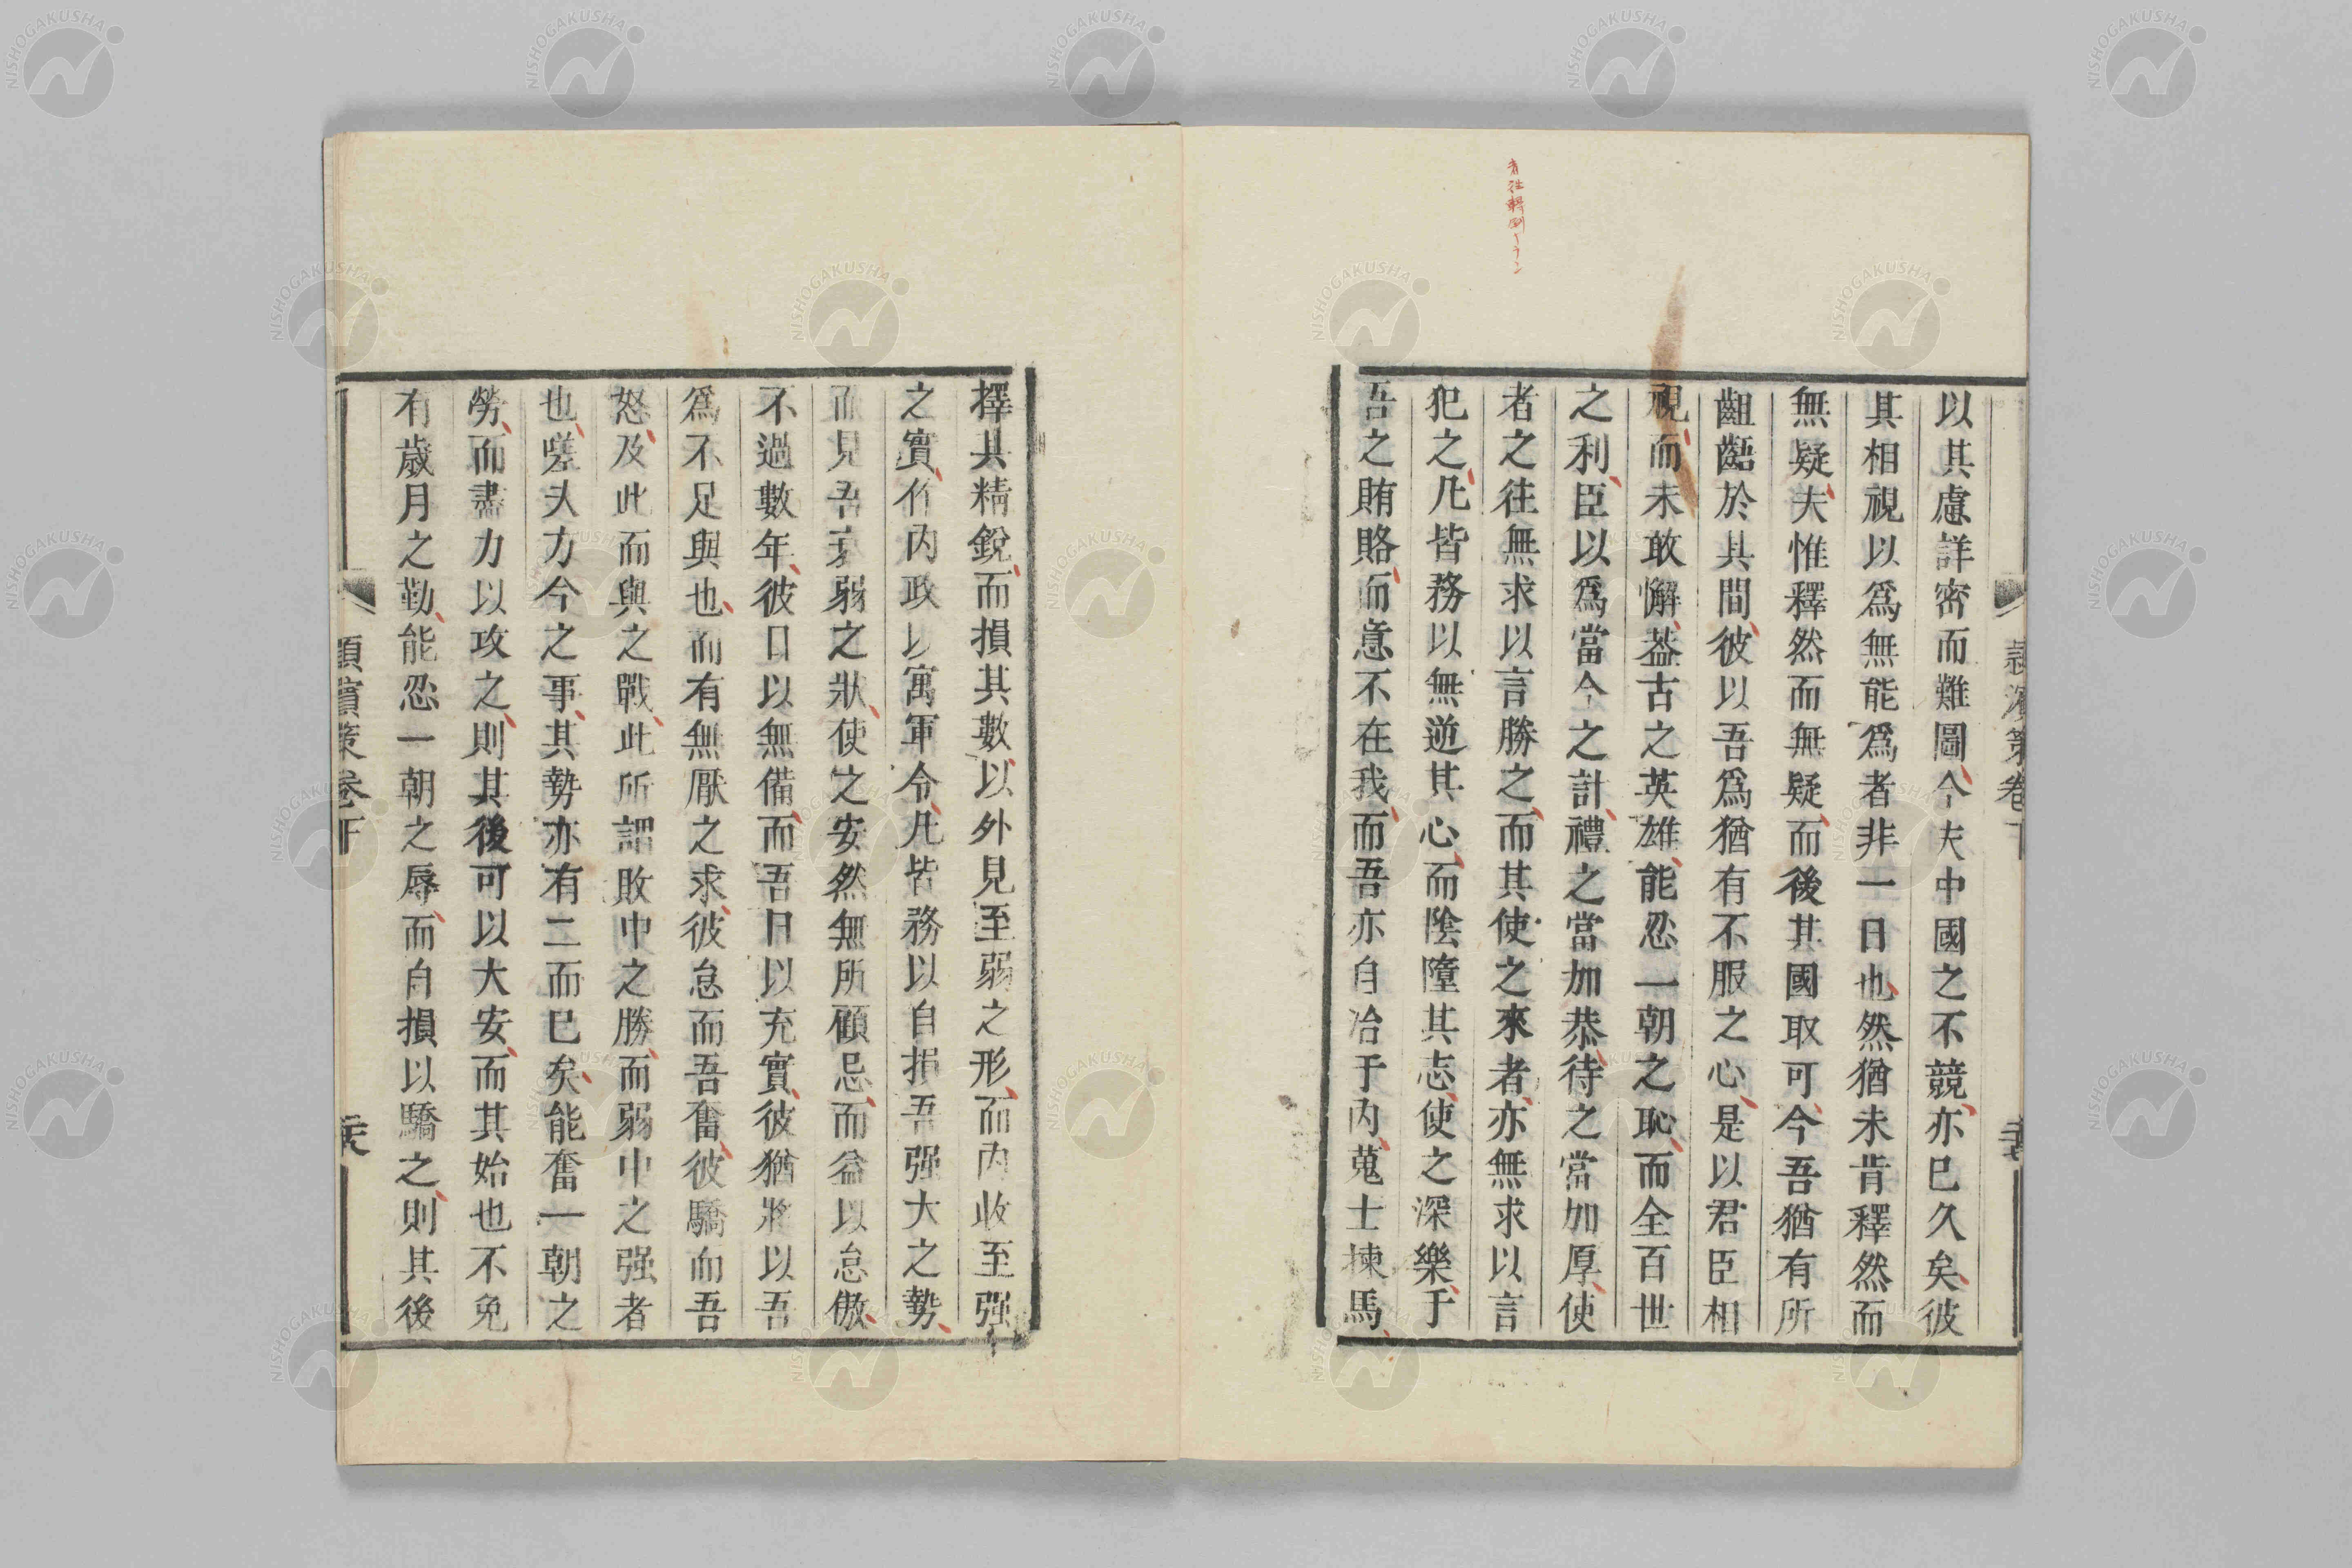 以其慮詳密而難圖今夫中國之不競亦已久矣彼
其相視以爲無能爲者非一日也然猶未肯釋然而
無疑夫惟釋然而無疑而後其國取可今吾猶有所
齟齬於其間彼以吾爲猶有不服之心是以君臣相
視而未敢懈葢古之英雄能忍一朝之恥而全百世
之利臣以爲當今之計禮之當加恭待之當加厚使
者之往無求以言勝之而其使之來者亦無求以言
犯之凡皆務以無逆其心而陰墮其志使之深樂于
吾之賄賂而意不在我而吾亦自治于内蒐士揀馬
擇其精銳而損其數以外見至弱之形而内收至强
之實作内政以寓軍令凡皆務以自損吾强大之勢
而見吾衰弱之狀使之安然無所顧忌而益以怠傲
不過數年彼日以無備而吾日以充實彼猶將以吾
爲不足與也而有無厭之求彼怠而吾奮彼驕而吾
怒及此而與之戰此所謂敗中之勝而弱中之强者
也嗟夫方今之事其勢亦有二而已矣能奮一朝之
勞而盡力以攻之則其後可以大安而其始也不免
有歲月之勤能忍一朝之辱而自損以驕之則其後
潁濱策卷下
NISHOGAKUSHA